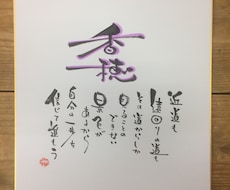 香穂
近道も
遠回りの道も
その道からしか
見ることの
できない
景色が
あるから
自分の一歩を
信じて進もう